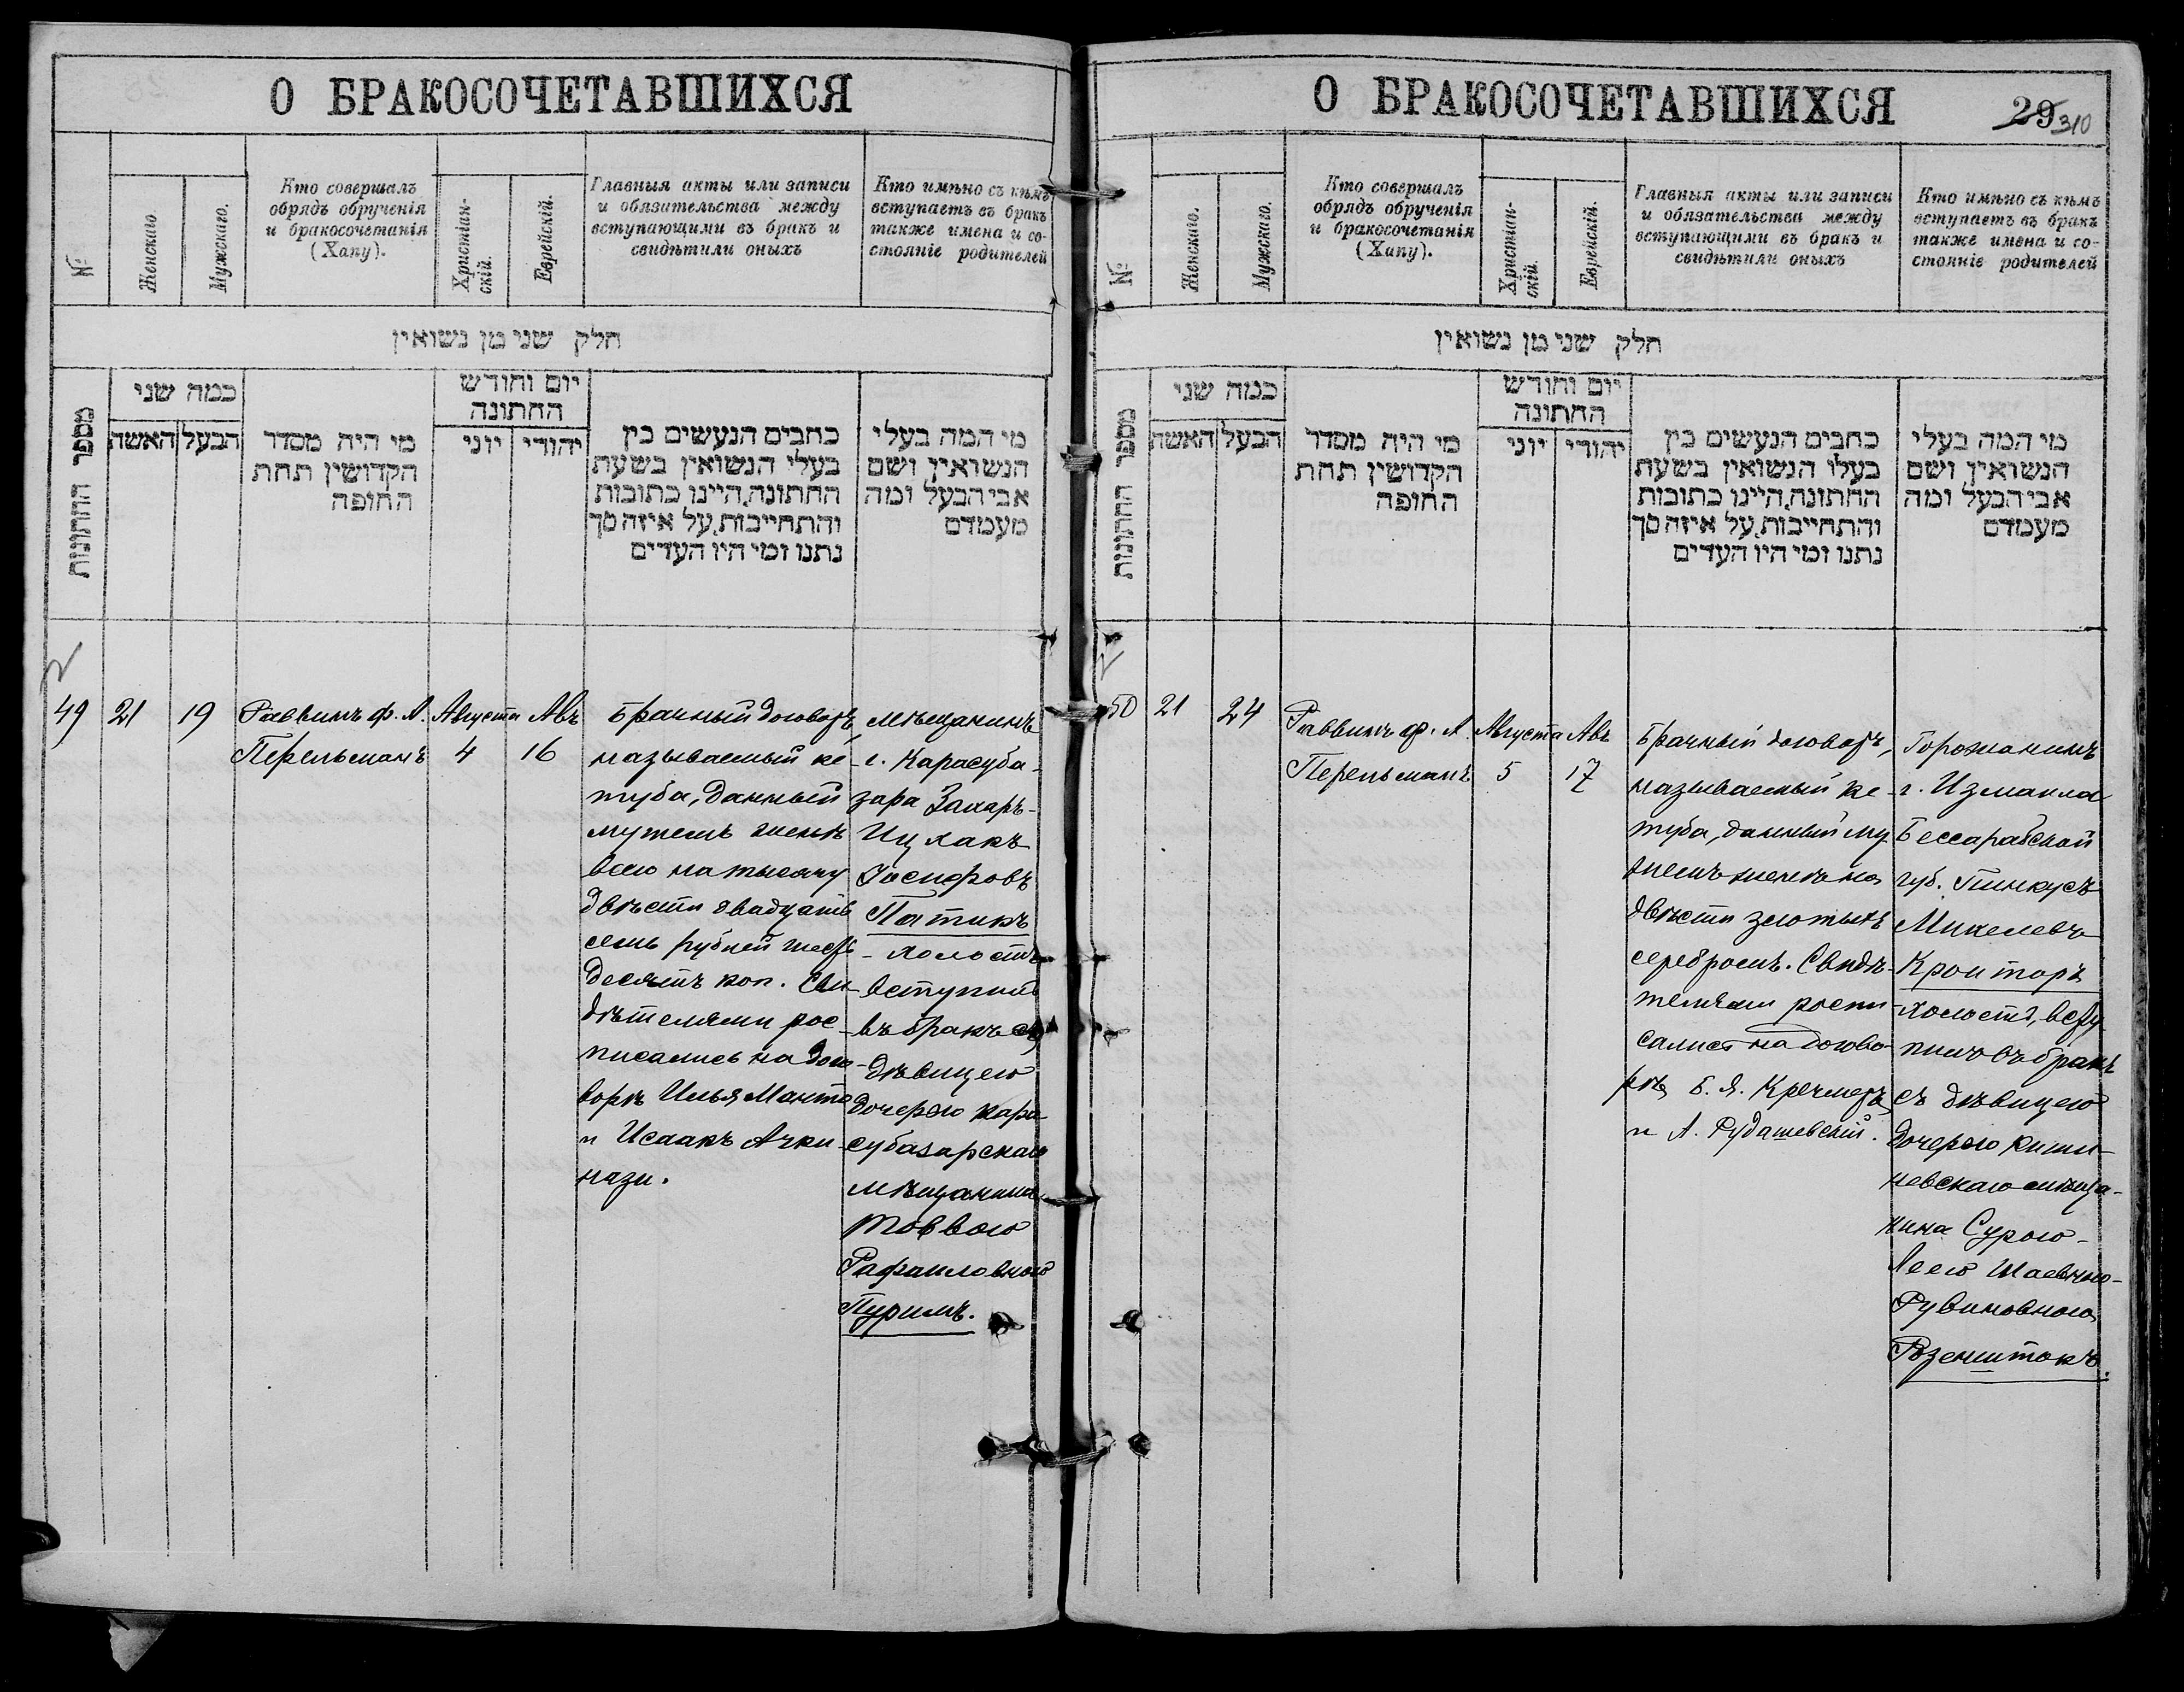 О БРАКОСОЧЕТАВШИХСЯ
№
Женскаго
Мужскаго.
Кто совершалъ
обрядъ обрученія
и бракосочетанія
(Хапу).
Христіан-
скій.
Еврейскій.
Главныя акты или записи
и обязательства между
вступающими въ бракъ и
свидѣтили оныхъ
Кто имѣно съ кѣмъ
вступаетъ въ бракъ
также имена и со-
стояніе родителей
חלק שני מן נשואין
מספר החתונות
כמה שני
האשה
הבעל
מי היה מסדר
הקדושין תחת
החופה
יום וחודש
החתונה
יוני
יהודי
כתבים הנעשים בין
בעלי הנשואין בשעת
החתונה, היינו כתובות
והתחייבות, על איזה סך
נתנו ומי היו העדים
מי המה בעלי
הנשואין ושם
אבי הבעל ומה
מעמדם
49
21
19
Раввинъ Ф. Л.
Перельманъ
Августа
4
Авъ
16
Брачный договоръ,
называемый ке-
туба, данный
мужемъ женѣ
всего на тысячу
двѣсти двадцать
семь рублей шесть
десятъ коп. Сви-
дѣтелями рос-
писались на дого-
ворѣ Илья Манто
и Исаакъ Ачки-
нази.
Мѣщанинъ
г. Карасуба-
зара Захаръ-
Ицхакъ
Іосифовъ
Патикъ
- холостъ
вступилъ
въ бракъ съ
дѣвицею
дочерью кара-
субазарскаго
мѣщанина
Товвою
Рафаиловною
Пуримъ.
О БРАКОСОЧЕТАВШИХСЯ
29 310
№
Женскаго.
Мужскаго.
Кто совершалъ
обрядъ обрученія
и бракосочетанія
(Хапу).
Христіан-
скій.
Еврейскій.
Главныя акты или записи
и обязательства между
вступающими въ бракъ и
свидѣтили оныхъ
Кто имѣно съ кѣмъ
вступаетъ въ бракъ
также имена и со-
стояніе родителей
חלק שני מן נשואין
מספר החתונות
כמה שני
האשה
הבעל
מי היה מסדר
הקדושין תחת
החופה
יום וחודש
החתונה
יוני
יהודי
כתבים הנעשים בין
בעלי הנשואין בשעת
החתונה, היינו כתובות
והתחייבות, על איזה סך
נתנו ומי היו העדים
מי המה בעלי
הנשואין ושם
אבי הבעל ומה
מעמדם
50
21
24
Раввинъ Ф. Л.
Перельманъ
Августа
5
Авъ
17
Брачный договоръ,
называемый ке-
туба, данный му-
жемъ женѣ на
двѣсти золотыхъ
серебромъ. Свидѣ-
телями роспи-
сались на догово-
рѣ Б. Я. Кречмеръ
и Л. Рудашевскій.
Горожанинъ
г. Измаила
Бессарабской
губ. Пинкусъ
Михелевъ
Крони­торъ
- холостъ, всту-
пилъ въ бракъ
съ дѣвицею
дочерью киши-
невскаго мѣща-
нина Сурою-
Леею Шаевною-
Рувиновною
Розенштокъ.